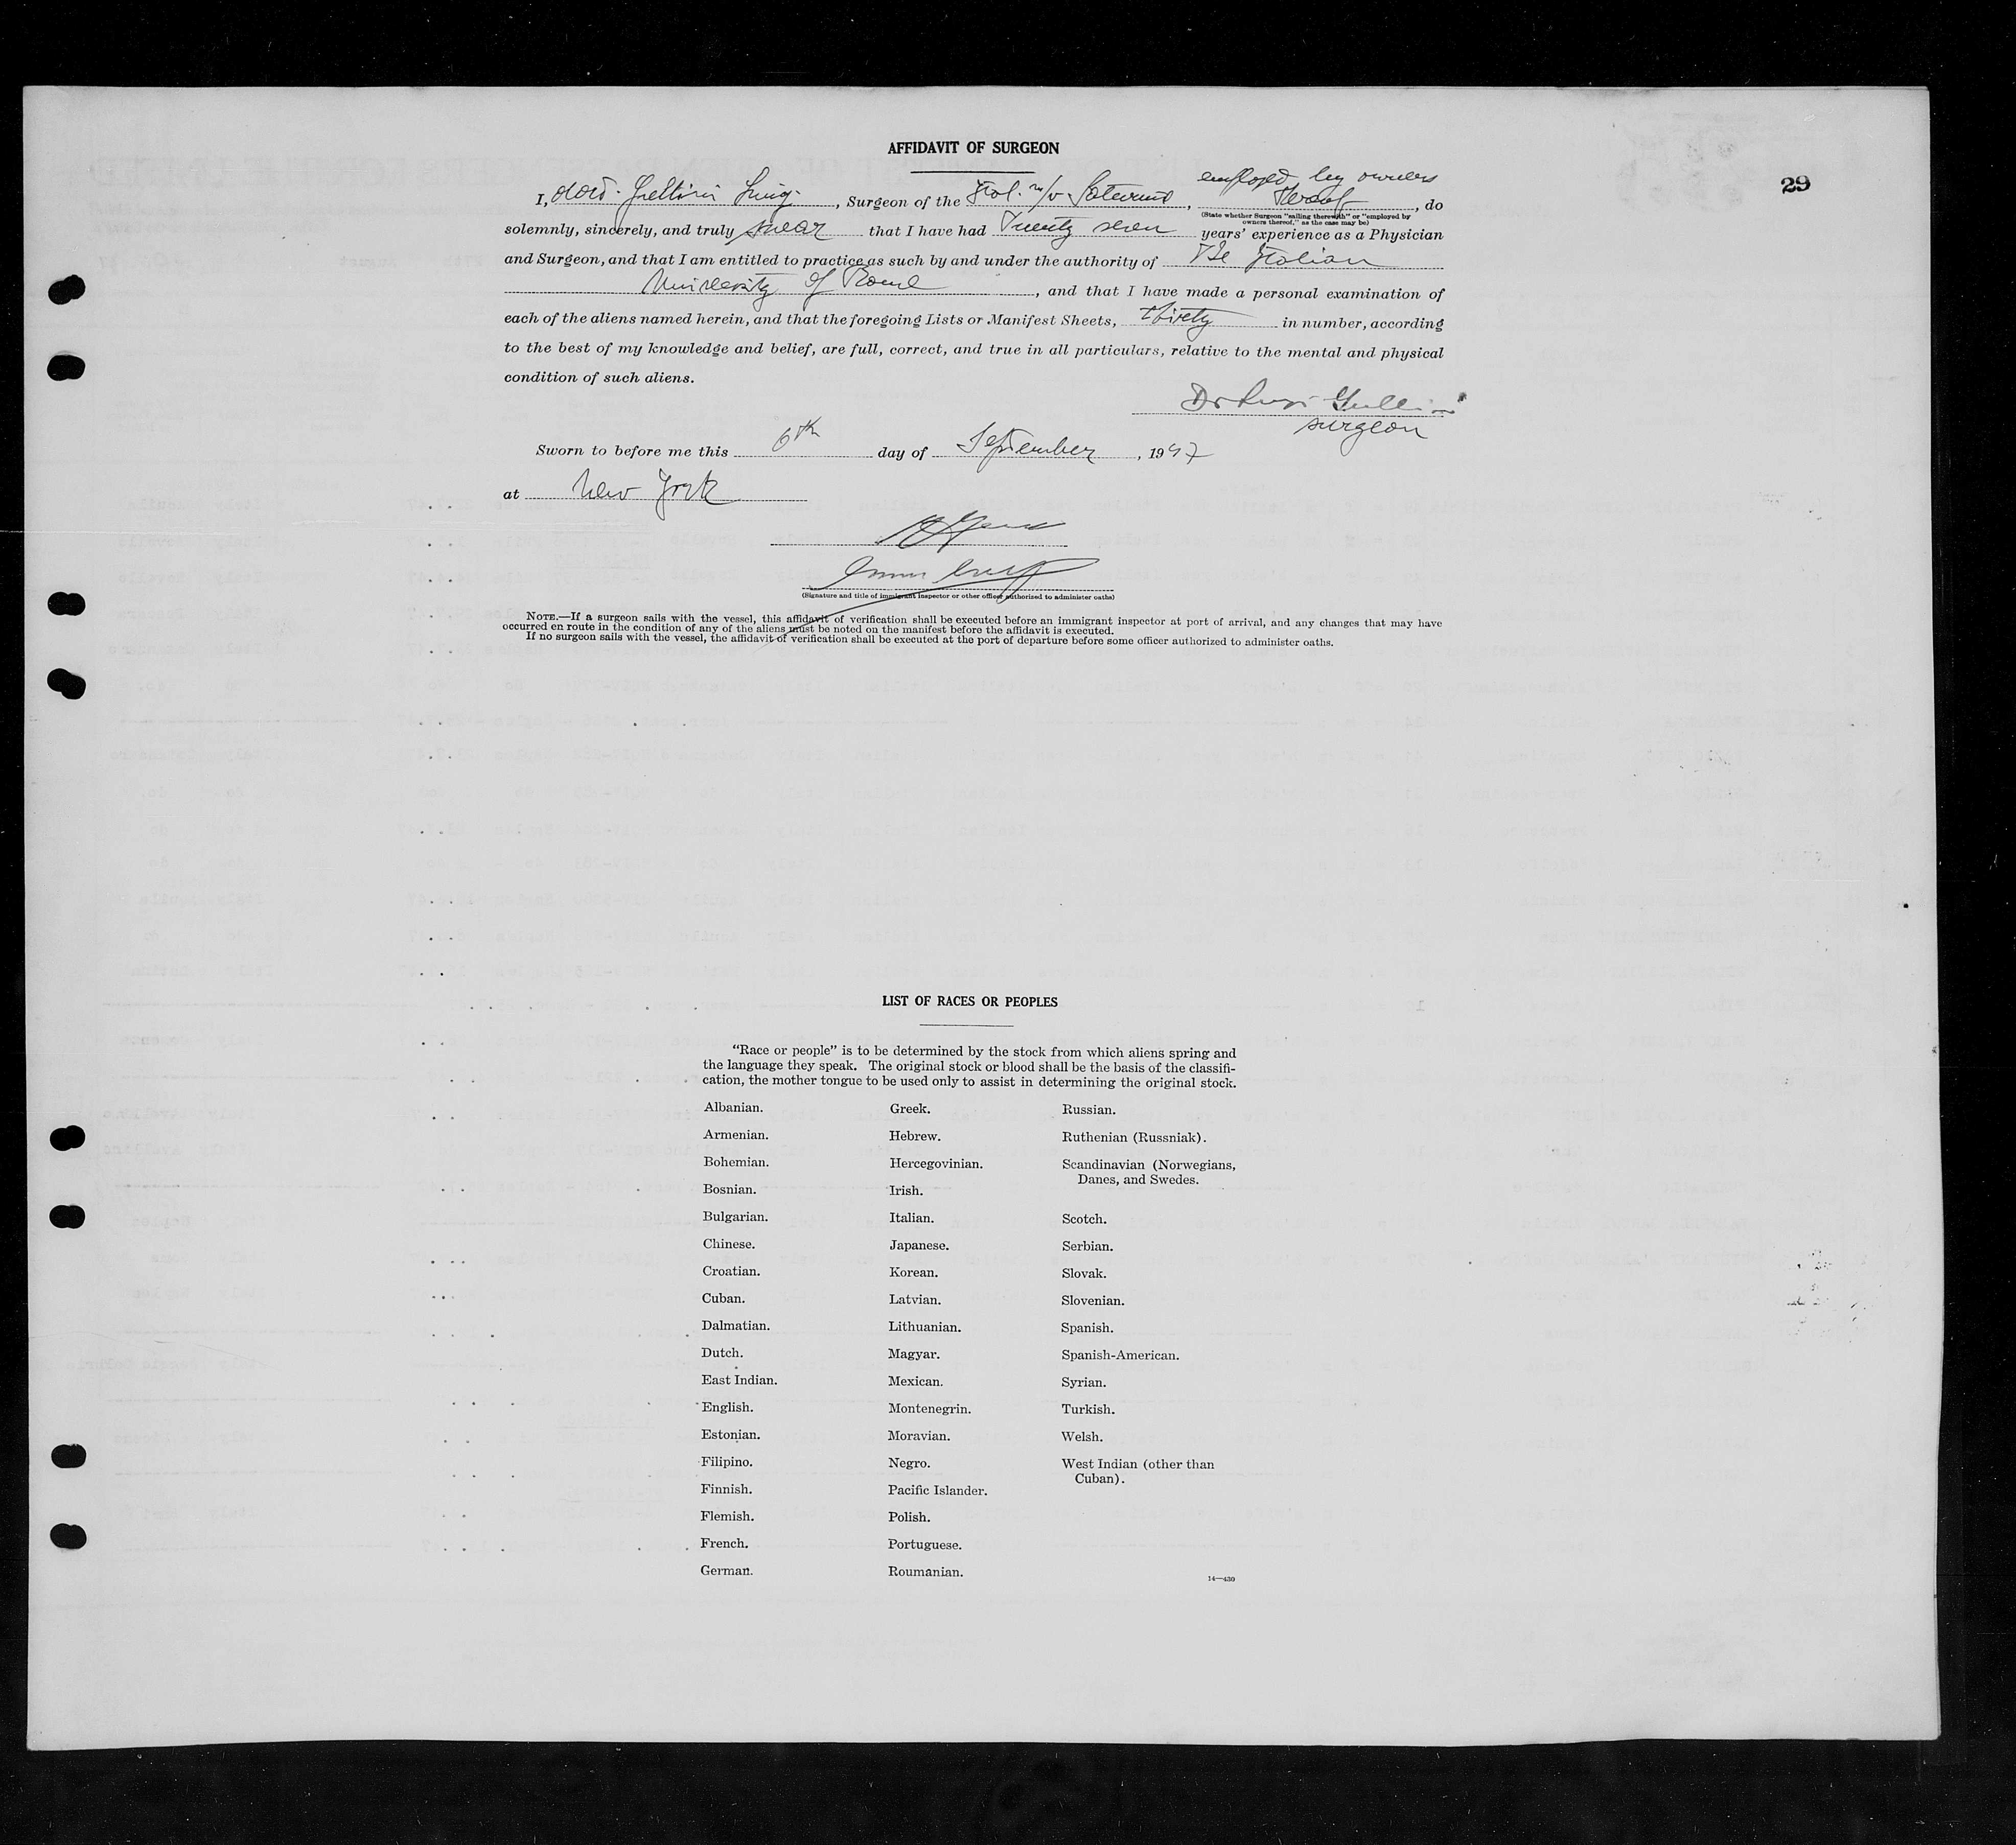 29
AFFIDAVIT OF SURGEON
employed by owners
I, dott. Gullini Luigi, Surgeon of the Ital. m/v Saturnia, thereof, do
(State whether Surgeon "sailing therewith" or "employed by
owners thereof," as the case may be)
solemnly, sincerely, and truly swear that I have had Twenty seven years' experience as a Physician
and Surgeon, and that I am entitled to practice as such by and under the authority of The Italian
University of Rome, and that I have made a personal examination of
each of the aliens named herein, and that the foregoing Lists or Manifest Sheets, thirty in number, according
to the best of my knowledge and belief, are full, correct, and true in all particulars, relative to the mental and physical
condition of such aliens.
Dr Luigi Gullini
surgeon
Sworn to before me this 6th day of September, 1947
at New York
(Signature and title of immigrant inspector or other officer authorized to administer oaths)
NOTE.—If a surgeon sails with the vessel, this affidavit of verification shall be executed before an immigrant inspector at port of arrival, and any changes that may have
occurred en route in the condition of any of the aliens must be noted on the manifest before the affidavit is executed.
If no surgeon sails with the vessel, the affidavit of verification shall be executed at the port of departure before some officer authorized to administer oaths.
LIST OF RACES OR PEOPLES
"Race or people" is to be determined by the stock from which aliens spring and
the language they speak. The original stock or blood shall be the basis of the classifi-
cation, the mother tongue to be used only to assist in determining the original stock.
Albanian.
Armenian.
Bohemian.
Bosnian.
Bulgarian.
Chinese.
Croatian.
Cuban.
Dalmatian.
Dutch.
East Indian.
English.
Estonian.
Filipino.
Finnish.
Flemish.
French.
German.
Greek.
Hebrew.
Hercegovinian.
Irish.
Italian.
Japanese.
Korean.
Latvian.
Lithuanian.
Magyar.
Mexican.
Montenegrin.
Moravian.
Negro.
Pacific Islander.
Polish.
Portuguese.
Roumanian.
Russian.
Ruthenian (Russniak).
Scandinavian (Norwegians,
Danes, and Swedes.
Scotch.
Serbian.
Slovak.
Slovenian.
Spanish.
Spanish-American.
Syrian.
Turkish.
Welsh.
West Indian (other than
Cuban).
14—430